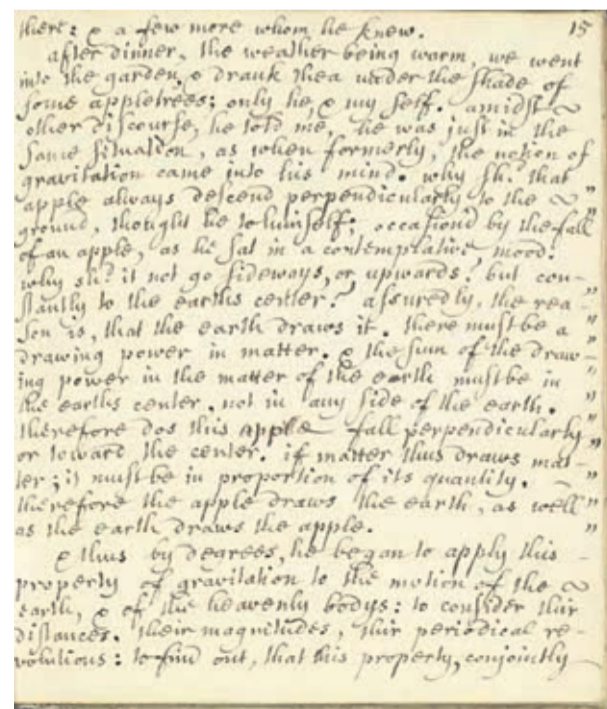 there: & a few more whom he knew. 15
after dinner, the weather being warm, we went
into the garden, & drank thea under the shade of
some appletrees; only he, & my self. amidst ~
other discourse, he told me, he was just in the
same situation, as when formerly, the notion of
gravitation came into his mind. why sh.d that "
apple always descend perpendicularly to the ~ "
ground, thought he to himself; occasion'd by the fall
of an apple, as he sat in a contemplative mood.
why sh.d it not go sideways, or upwards? but con-
stantly to the earths center? assuredly, the rea- "
son is, that the earth draws it. there must be a "
drawing power in matter. & the sum of the draw- "
ing power in the matter of the earth must be in "
the earths center, not in any side of the earth. "
therefore dos this apple fall perpendicularly "
or toward the center. if matter thus draws mat- "
ter; it must be in proportion of its quantity. "
therefore the apple draws the earth, as well "
as the earth draws the apple. "
& thus by degrees, he began to apply this -
property of gravitation to the motion of the ~
earth, & of the heavenly bodys: to consider thir
distances, their magnitudes, thir periodical re-
volutions: to find out, that this property, conjointly